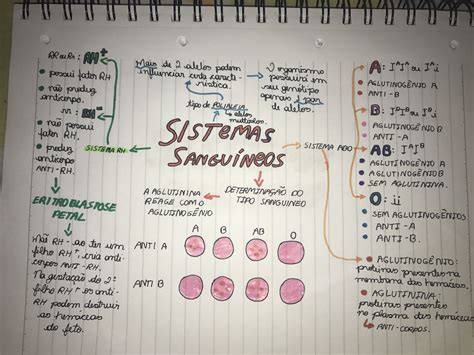 RR ou Rr: RH+
• possui fator RH
• não produz
anticorpo.
rr: RH-
• não possui
fator RH.
• produz
anticorpo
ANTI-RH.
ERITROBLASTOSE
FETAL
Mãe RH- ao ter um
filho RH+, cria anti-
corpos anti-RH.
Na gestação do 2º
filho RH+ os anti-
RH podem destruir
as hemáceas
do feto.
SISTEMA RH
Mais de 2 alelos podem
influenciar certa caracte-
rística.
tipo de POLIALELIA
→ alelos
múltiplos.
O organismo
possuirá em
seu genótipo
apenas 1 par
de alelos.
SISTEMAS
SANGUÍNEOS
SISTEMA ABO
A AGLUTININA
REAGE COM O
AGLUTINOGÊNIO
DETERMINAÇÃO DO
TIPO SANGUINEO
A B AB O
ANTI A
ANTI B
A: IᴬIᴬ ou Iᴬi
• AGLUTINOGÊNIO A
• ANTI-B
B: IᴮIᴮ ou Iᴮi
• AGLUTINOGÊNIO B
• ANTI-A
AB: IᴬIᴮ
• AGLUTINOGÊNIO A
• AGLUTINOGÊNIO B
• SEM AGLUTININA.
O: ii
• SEM AGLUTINOGÊNIOS
• ANTI-A
• ANTI-B.
• AGLUTINOGÊNIO:
proteínas presentes na
membrana das hemáceas.
• AGLUTININA:
proteínas presentes
no plasma das hemáceas.
↳ ANTI-CORPOS.